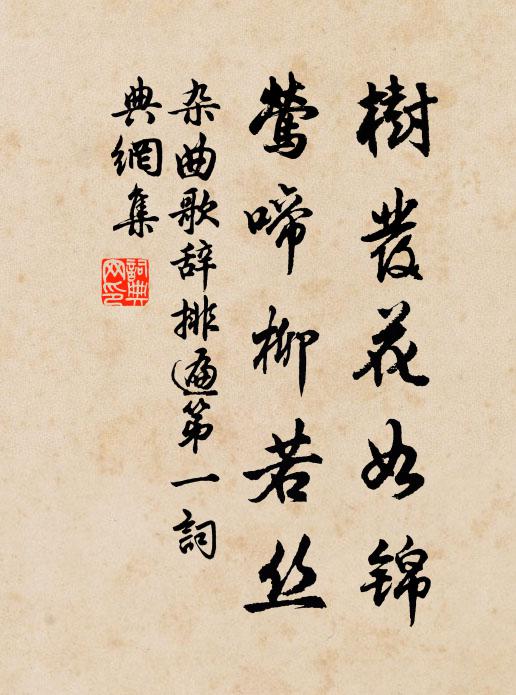 樹發花如锦
鶯啼柳若丝
杂曲歌辞排遍第一詞
典網集
詞典
网印